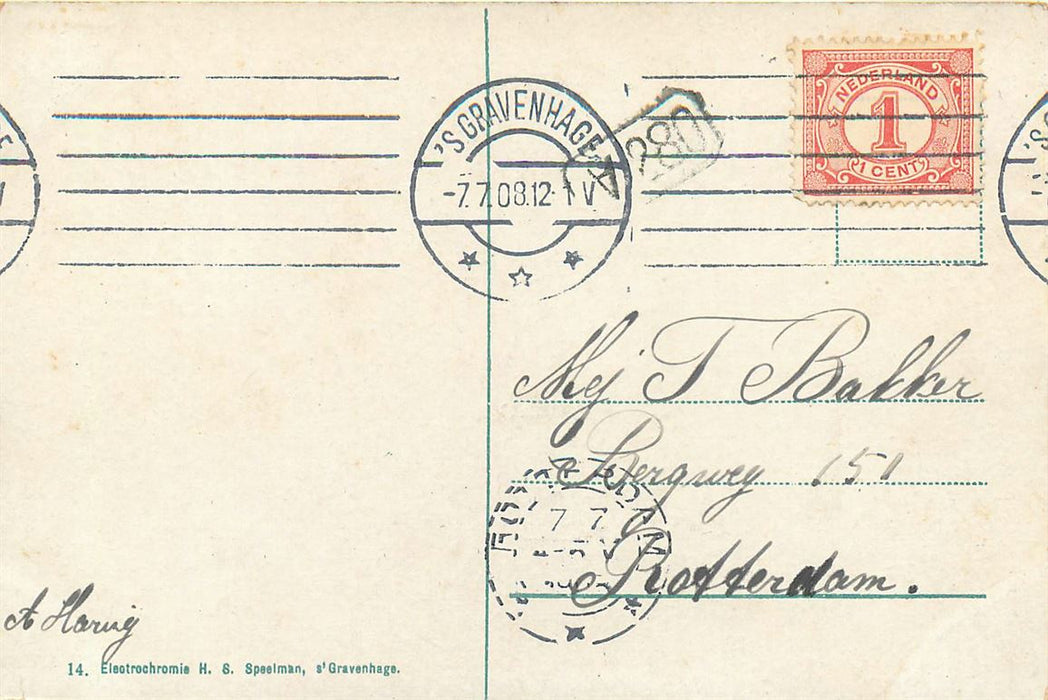 NEDERLAND
1
1 CENT
'S GRAVENHAGE
-7.7.08.12-1V
280
Mej T Bakker
Bergweg 151
Rotterdam.
7 7
14. Electrochromie H. S. Speelman, s'Gravenhage.